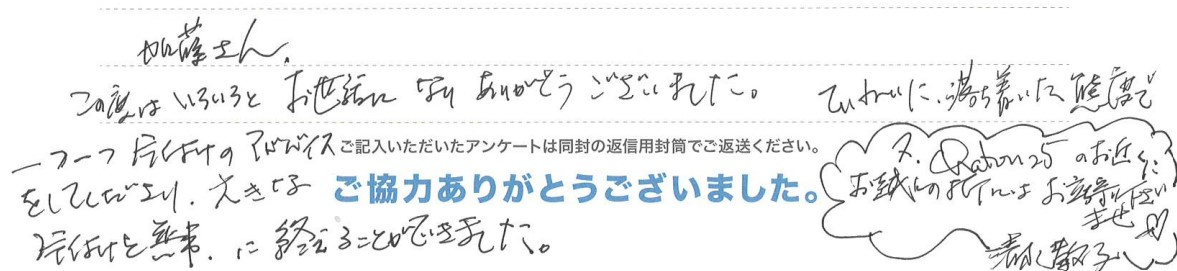 加藤さん、
この度は いろいろと お世話に なり ありがとう ございました。
ていねいに、落ち着いた 態度で
一つ一つ 片付けの アドバイス
をしてくださり、大きな
片付けを 無事、に 終えることができました。
ご記入いただいたアンケートは同封の返信用封筒でご返送ください。
ご協力ありがとうございました。
又、 25 のお近くに
お越しの折には お立寄り下さい
ませ♡